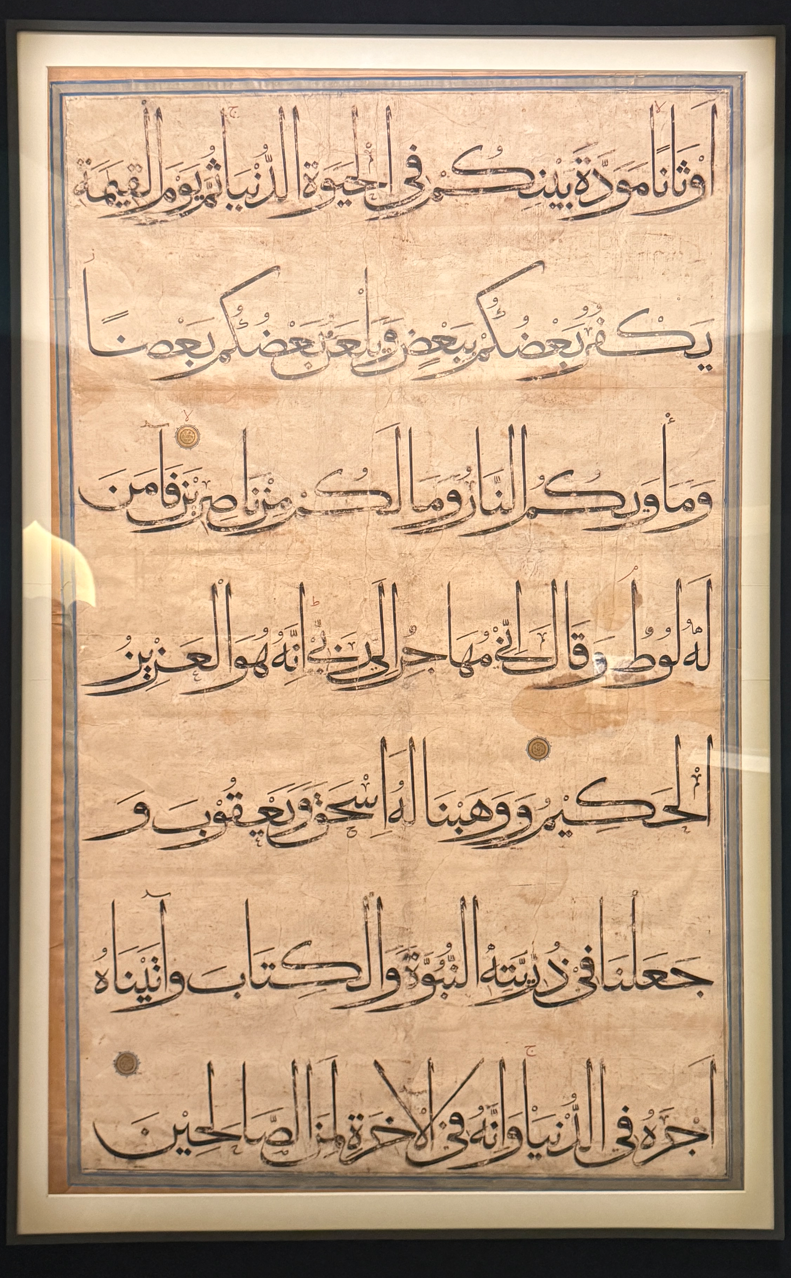 اَوْثَانًا مَوَدَّةَ بَيْنِكُمْ فِي الْحَيٰوةِ الدُّنْيَا ثُمَّ يَوْمَ الْقِيٰمَةِ
يَكْفُرُ بَعْضُكُمْ بِبَعْضٍ وَيَلْعَنُ بَعْضُكُمْ بَعْضًا
وَمَأْوٰيكُمُ النَّارُ وَمَا لَكُمْ مِنْ نَاصِرِينَ فَاٰمَنَ
لَهُ لُوطٌ وَقَالَ اِنِّي مُهَاجِرٌ اِلٰى رَبِّي اِنَّهُ هُوَ الْعَزِيزُ
الْحَكِيمُ وَوَهَبْنَا لَهُ اِسْحٰقَ وَيَعْقُوبَ وَ
جَعَلْنَا فِي ذُرِّيَّتِهِ النُّبُوَّةَ وَالْكِتَابَ وَاٰتَيْنَاهُ
اَجْرَهُ فِي الدُّنْيَا وَاِنَّهُ فِي الْاٰخِرَةِ لَمِنَ الصَّالِحِينَ